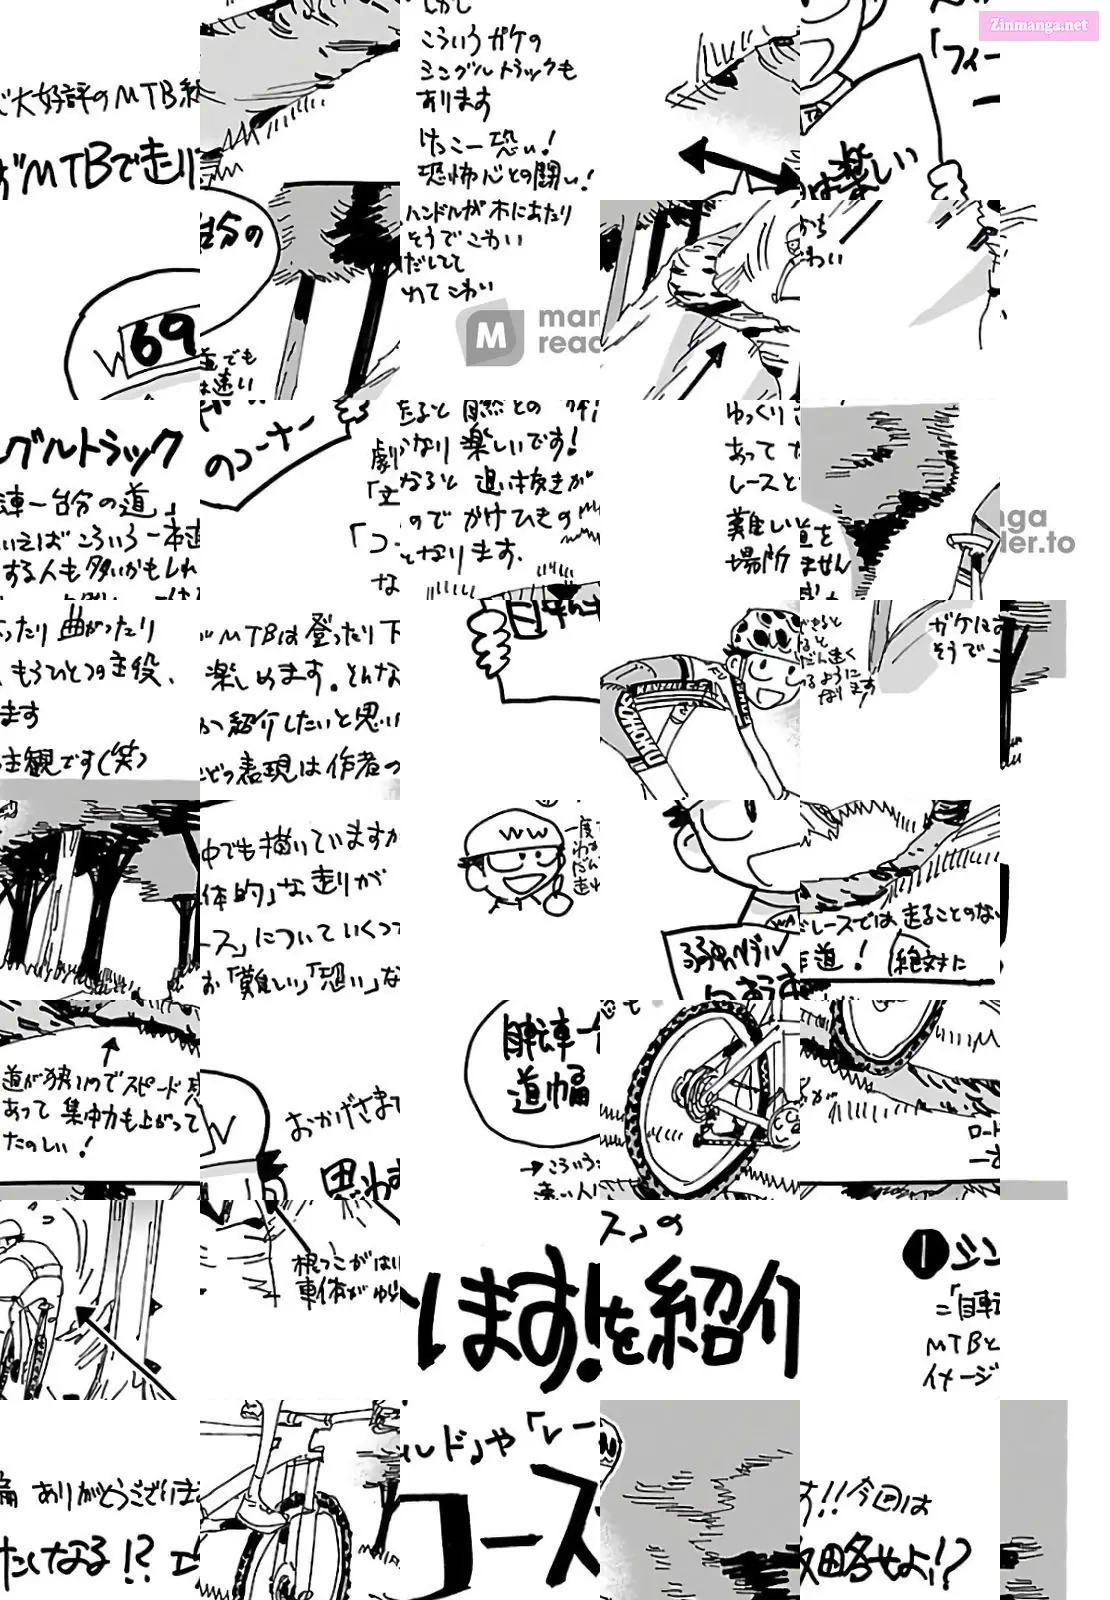 Zinmanga.net
で大好評のMTB編
ばMTBで走りた
しかし
こういうガケの
シングルトラックも
あります
けっこー恐い!
恐怖心との闘い!
「フィー
は楽しい
自分の
W69
道でも
は速い
ハンドルが木にあたり
そうでこわい
だしてて
れてこわい
man
read
がち
こわい
グルトラック
転車一台分の道」
いえばこういう一本道
する人も多いかもしれ
のコーナー
たると自然との
かなり楽しいです!
なると追い抜きが
のでかけひきの
となります.
劇
「コー
な
ゆっくり
あって
レースと
難しい
場所
道を
ません
nga
der.to
ったり曲がったり
もうひとつの主役、
ます
主観です(笑)
MTBは登ったり下
楽しめます.そんな
つ紹介したいと思い
など表現は作者の
できると
なると
だん速く
るように
なります
ガケにお
そうでこ
中でも描いていますが
体的」な走りが
ース」についていくつ
お「難しい」「恐い」な
WW
一度
弱虫ペダル
レースでは走ることのない
道!
絶対に
道が狭いのでスピード感
あって集中力も上がって
たのしい!
W
おかげさまで
思わず
自転車一
道幅
→こういう
速い人
ロード
一さ
根っこがはい
車体がゆ
ス」の
います!を紹介
❶シン
=「自転
MTBと
イメージ
編ありがとうございま
たくなる!?コ
ールド」や「レー
コース
す!!今回は
攻略せよ!?